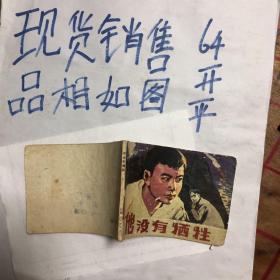 现货销售
品相如图
64开平
他没有牺牲